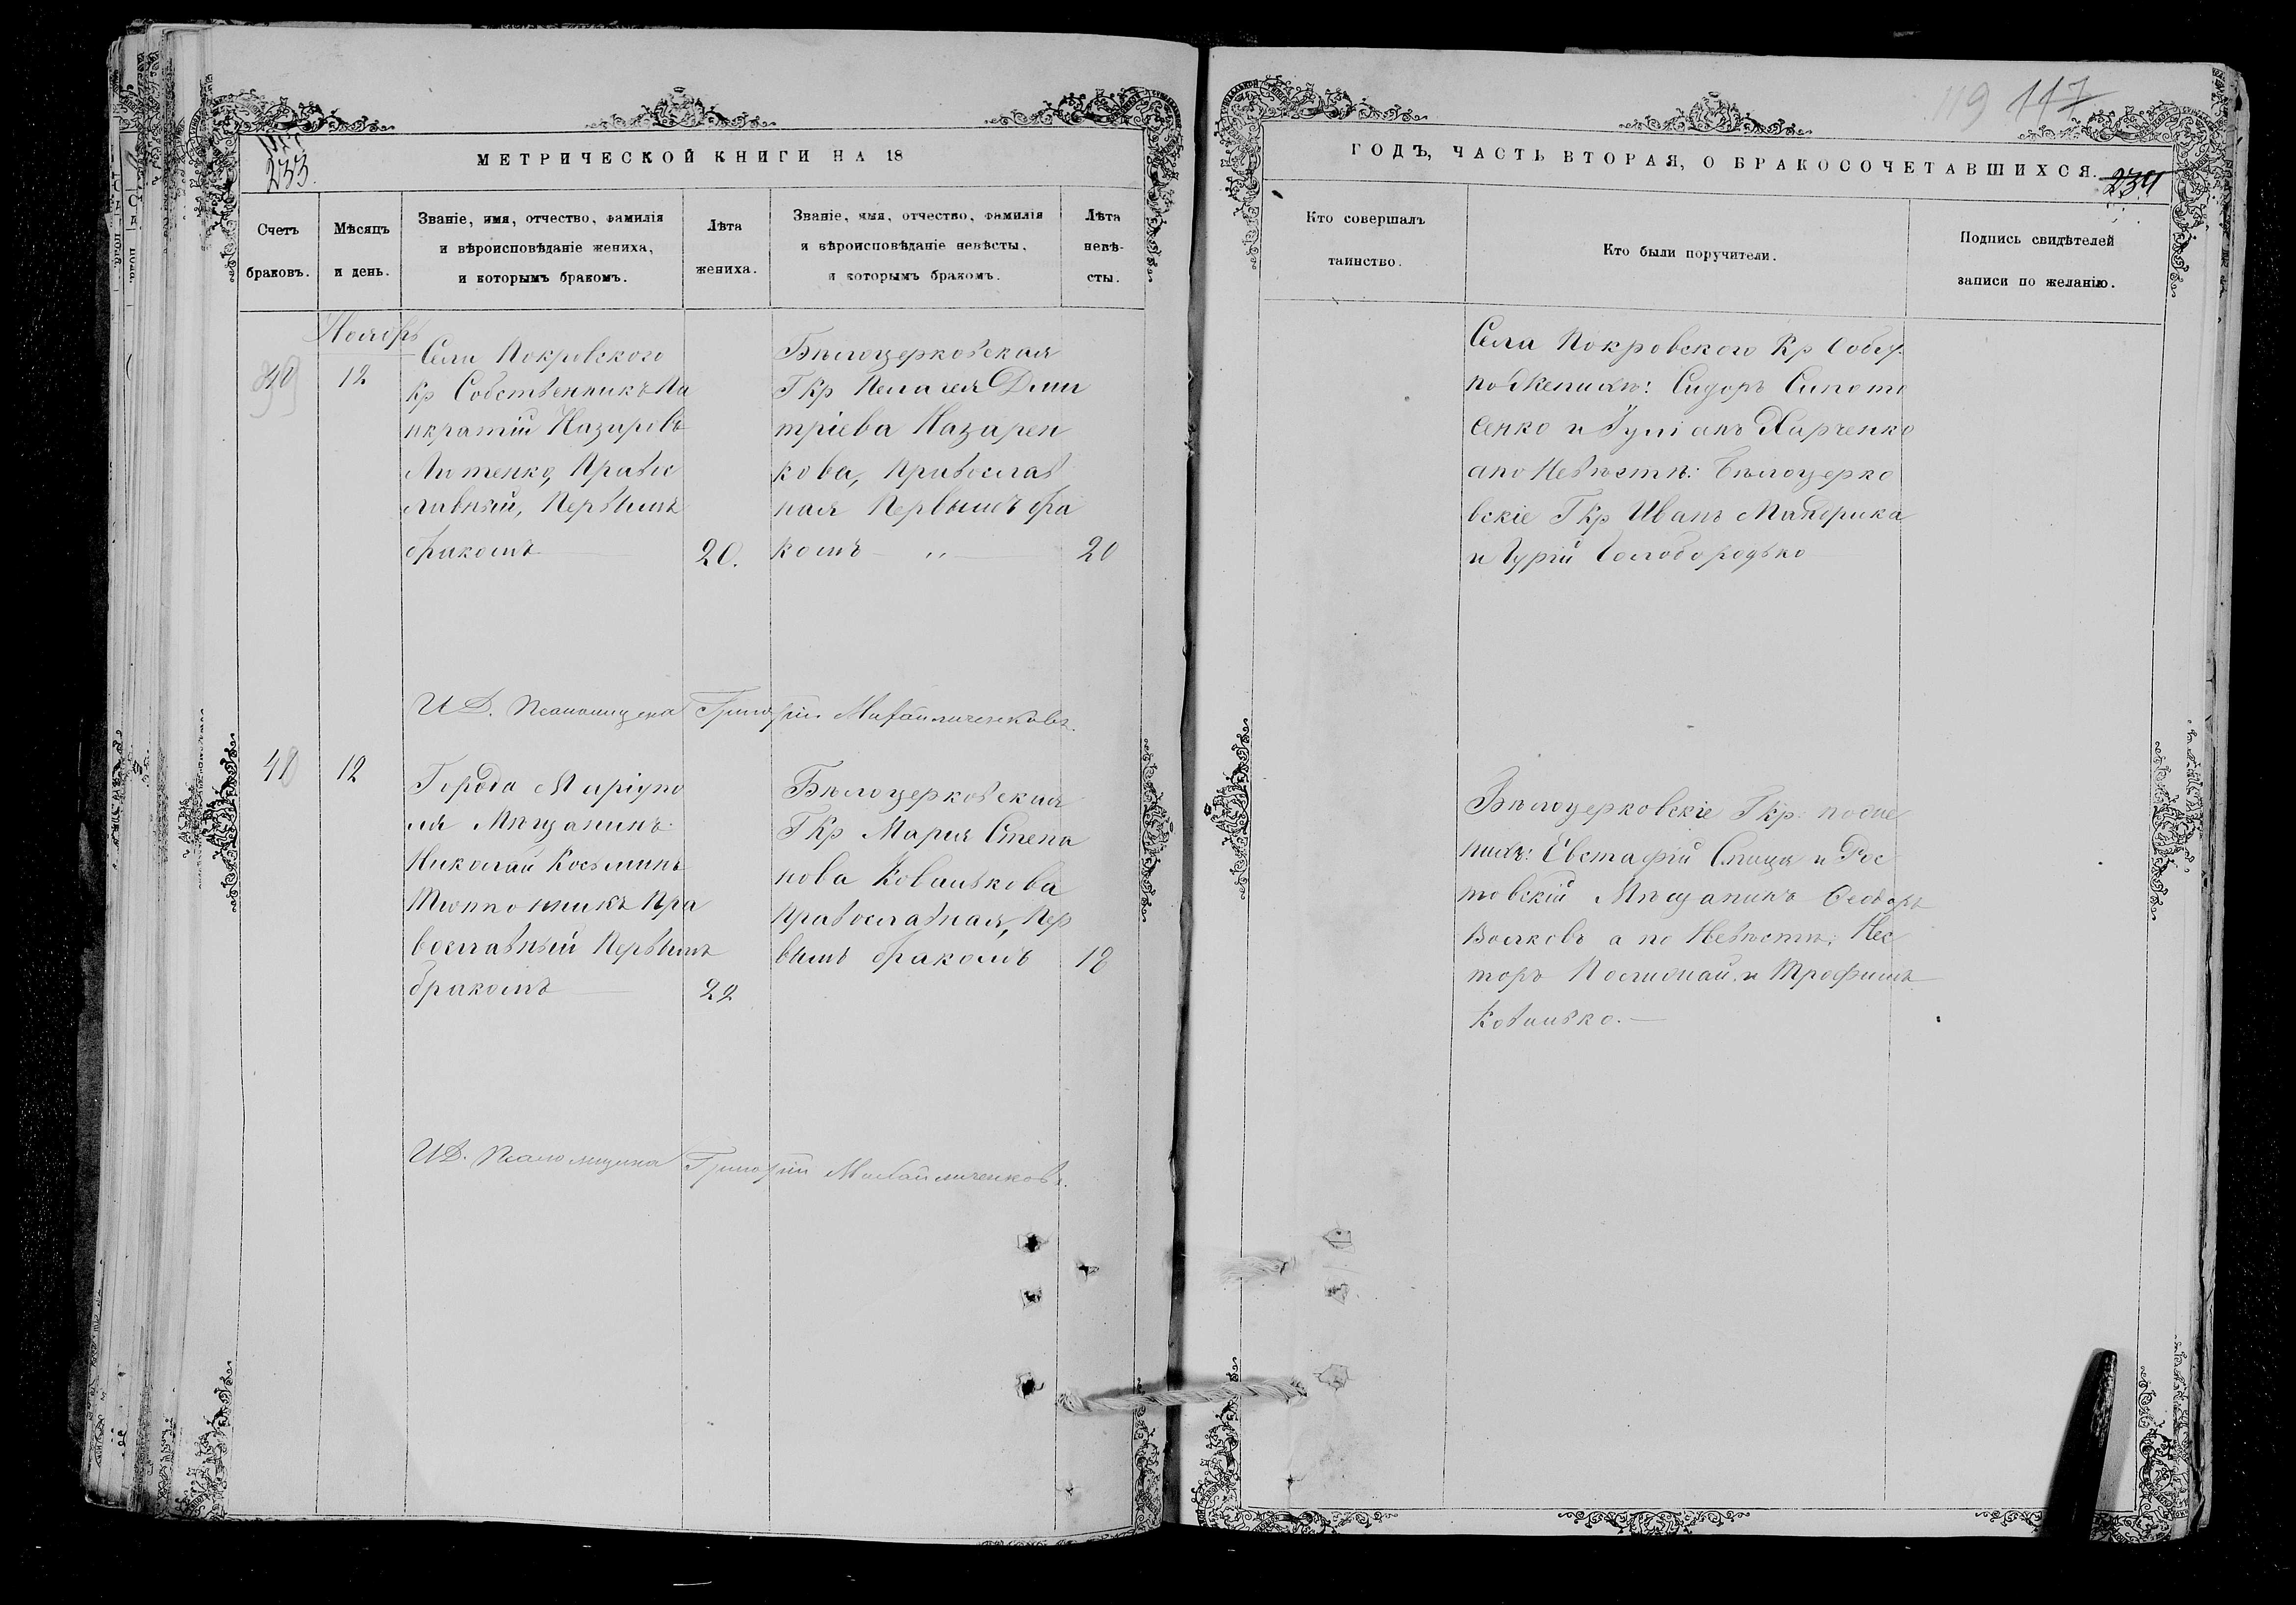 233.
МЕТРИЧЕСКОЙ КНИГИ НА 18
Счетъ
браковъ.
Мѣсяцъ
и день.
Званіе, имя, отчество, фамилія
и вѣроисповѣданіе жениха,
и которымъ бракомъ.
Лѣта
жениха.
Званіе, имя, отчество, фамилія
и вѣроисповѣданіе невѣсты,
и которымъ бракомъ.
Лѣта
невѣ-
сты.
Ноябрь
12
Села Покровского
Кр Собственникъ Па
нкратій Назаровъ
Православ
ливный, Первымъ
бракомъ
20.
Бѣлоцерковская
ГКр Пелагея Дми
тріева Назарен
кова, Православ
ная Первымъ бра
комъ „
20
И Д. Псаломщика Григорій Михайличенковъ.
12
Города Маріупо
ля Мѣщанинъ
Николай Косьминъ
Тютюнникъ Пра
вославный Первымъ
бракомъ
22
Бѣлоцерковская
ГКр Марія Степа
нова Ковалькова
Православная, Пер
вымъ бракомъ
18
И Д. Псаломщика Григорій Михайличенковъ.
119 117
ГОДЪ, ЧАСТЬ ВТОРАЯ, О БРАКОСОЧЕТАВШИХСЯ.
234
Кто совершалъ
таинство.
Кто были поручители.
Подпись свидѣтелей
записи по желанію.
Села Покровского Кр Собст.
по Женихѣ: Сидоръ
сенко и Харченко
а по Невѣстѣ: Бѣлоцерко
вскіе ГКр Иванъ Мандрика
и Гурій Голобородько
Бѣлоцерковскіе Гкр. по же
нихѣ: Евстафій Спица и Рос
товскій Мѣщанинъ Феодоръ
Волковъ а по Невѣстѣ: Нес
торъ и Трофимъ
Ковалько.